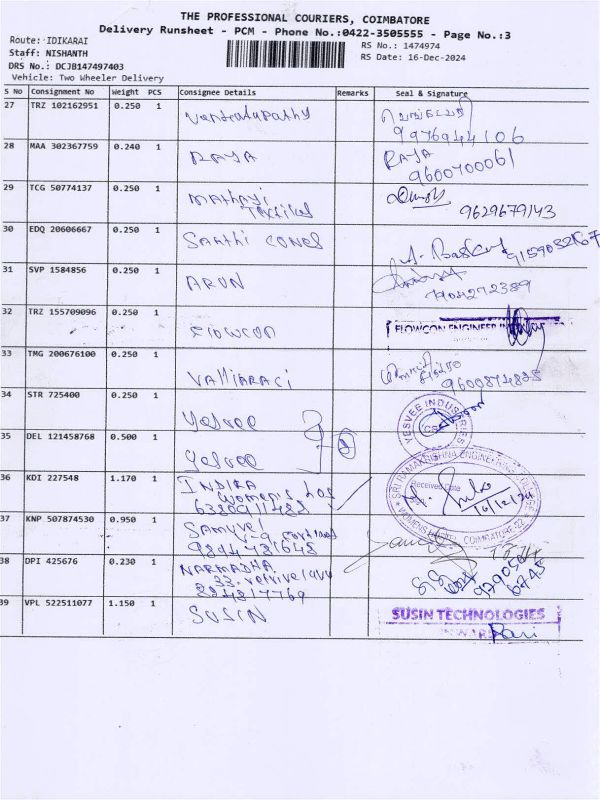 THE PROFESSIONAL COURIERS, COIMBATORE
Delivery Runsheet - PCM - Phone No.:0422-3505555 - Page No.:3
Route: IDIKARAI
Staff: NISHANTH
DRS No.: DCJB147497403
Vehicle: Two Wheeler Delivery
RS No.: 1474974
RS Date: 16-Dec-2024
S No Consignment No Weight PCS Consignee Details Remarks Seal & Signature
27 TRZ 102162951 0.250 1 Venkatapathy
9976944106
28 MAA 302367759 0.240 1 RAJA RAJA
9600700061
29 TCG 50774137 0.250 1 Mathayi
Textiles
9629679143
30 EDQ 20606667 0.250 1 Santhi CONES A. Baskar
31 SVP 1584856 0.250 1 ARUN
7904272389
32 TRZ 155709096 0.250 1 FLOWCON FLOWCON ENGINEER
33 TMG 200676100 0.250 1 Valliaraci
34 STR 725400 0.250 1 yesvee YESVEE INDUSTRIES
35 DEL 121458768 0.500 1 yesvee
36 KDI 227548 1.170 1 INDIRA
womens hos
6380911488
SRI RAMAKRISHNA ENGINEERING COLLEGE
WOMENS HOSTEL COIMBATORE-22
Received Date
16/12/24
37 KNP 507874530 0.950 1 Samuvel
9894781648
38 DPI 425676 0.230 1 NARMADHA
39 VPL 522511077 1.150 1 SUSIN SUSIN TECHNOLOGIES